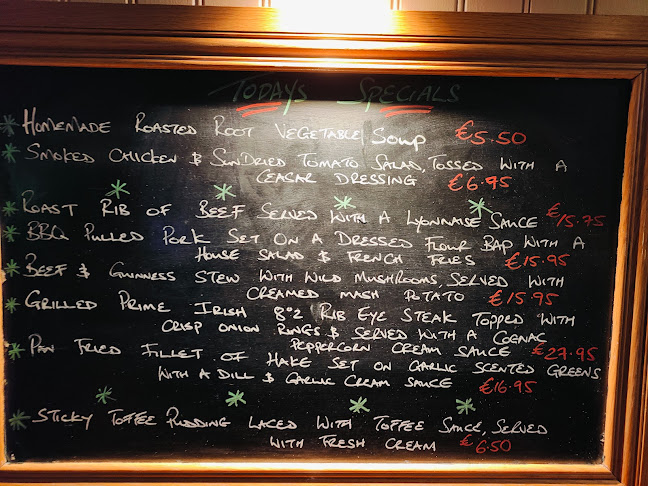 TODAYS SPECIALS
* HOMEMADE ROASTED ROOT VEGETABLE SOUP €5.50
* SMOKED CHICKEN & SUNDRIED TOMATO SALAD, TOSSED WITH A
CEASAR DRESSING €6.95
* ROAST RIB OF BEEF SERVED WITH A LYONNAISE SAUCE €15.75
* BBQ PULLED PORK SET ON A DRESSED FLOUR BAP WITH A
HOUSE SALAD & FRENCH FRIES €15.95
* BEEF & GUINNESS STEW WITH WILD MUSHROOMS, SERVED WITH
CREAMED MASH POTATO €15.95
* GRILLED PRIME IRISH 8oz RIB EYE STEAK TOPPED WITH
CRISP ONION RINGS & SERVED WITH A COGNAC
PEPPERCORN CREAM SAUCE €27.95
* PAN FRIED FILLET OF HAKE SET ON GARLIC SCENTED GREENS
WITH A DILL & GARLIC CREAM SAUCE €16.95
* STICKY TOFFEE PUDDING LACED WITH TOFFEE SAUCE, SERVED
WITH FRESH CREAM €6.50